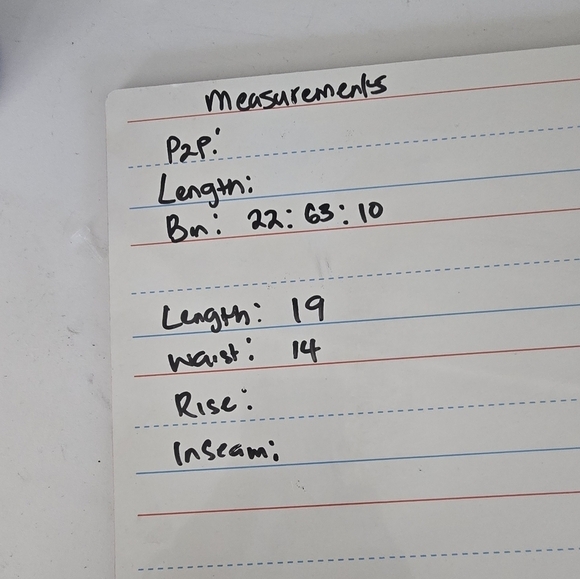 Measurements
P2P:
Length:
Bin: 22:63:10
Length: 19
Waist: 14
Rise:
Inseam: